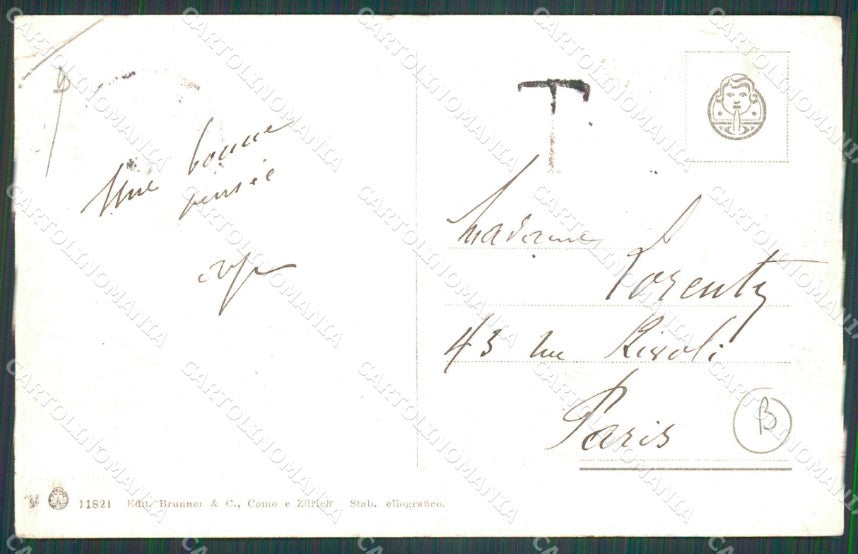 Une bonne
pensée
T
Madame
Lorentz
43 rue Rivoli
Paris
B
11821 Edit. Brunner & C., Como e Zürich - Stab. eliografico.
CARTOLINOMANIA